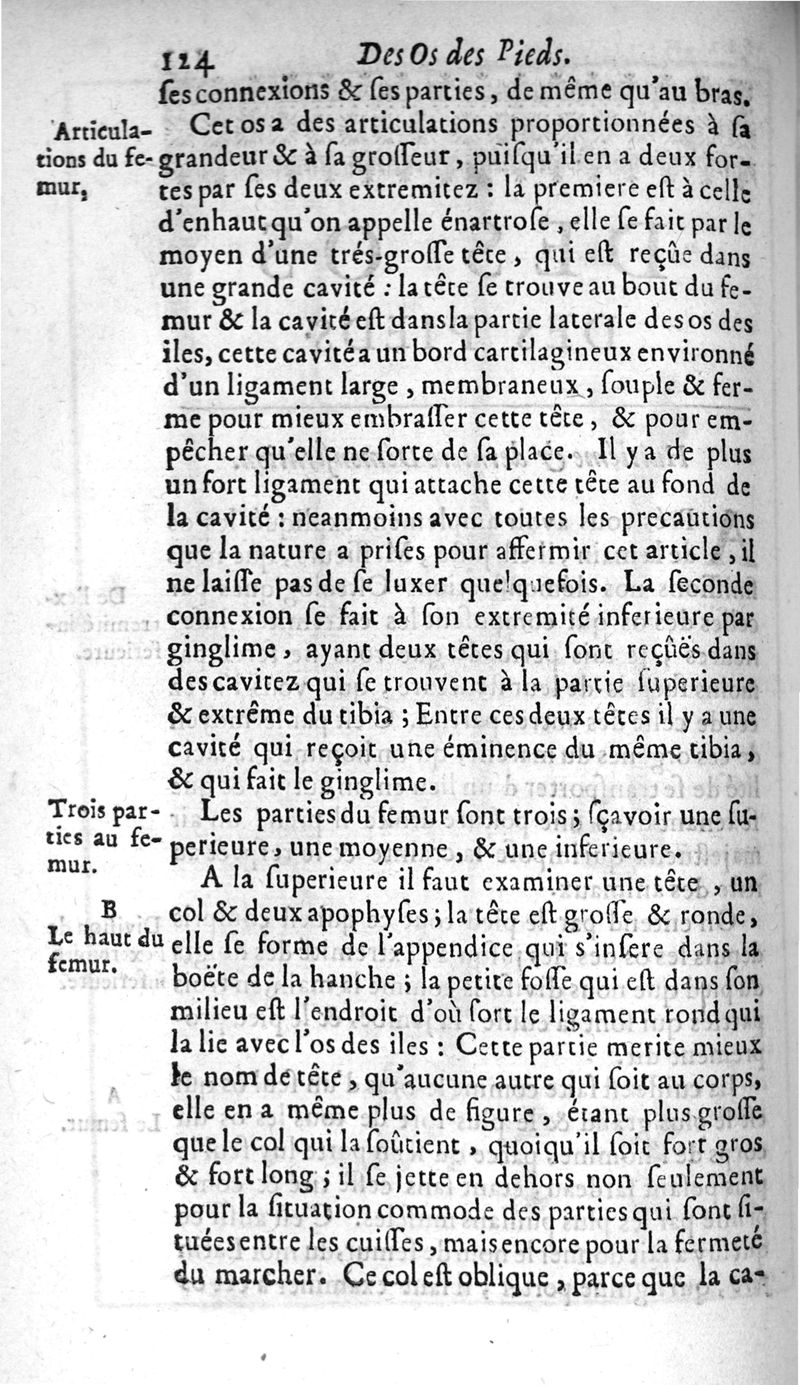 124 Des Os des Pieds.
ſes connexions & ſes parties, de même qu'au bras.
Articula-
tions du fe-
mur,
Cet os a des articulations proportionnées à ſa
grandeur & à ſa groſſeur, puiſqu'il en a deux for-
tes par ſes deux extremitez : la premiere eſt à celle
d'enhaut qu'on appelle énartroſe, elle ſe fait par le
moyen d'une trés-groſſe tête, qui eſt reçûe dans
une grande cavité : la tête ſe trouve au bout du fe-
mur & la cavité eſt dans la partie laterale des os des
iles, cette cavité a un bord cartilagineux environné
d'un ligament large, membraneux, ſouple & fer-
me pour mieux embraſſer cette tête, & pour em-
pêcher qu'elle ne ſorte de ſa place. Il y a de plus
un fort ligament qui attache cette tête au fond de
la cavité : neanmoins avec toutes les precautions
que la nature a priſes pour affermir cet article, il
ne laiſſe pas de ſe luxer quelquefois. La ſeconde
connexion ſe fait à ſon extremité inferieure par
ginglime, ayant deux têtes qui ſont reçûës dans
des cavitez qui ſe trouvent à la partie ſuperieure
& extrême du tibia ; Entre ces deux têtes il y a une
cavité qui reçoit une éminence du même tibia,
& qui fait le ginglime.
Trois par-
ties au fe-
mur.
Les parties du femur ſont trois ; ſçavoir une ſu-
perieure, une moyenne, & une inferieure.
B
Le haut du
femur.
A la ſuperieure il faut examiner une tête, un
col & deux apophyſes ; la tête eſt groſſe & ronde,
elle ſe forme de l'appendice qui s'inſere dans la
boëte de la hanche ; la petite foſſe qui eſt dans ſon
milieu eſt l'endroit d'où ſort le ligament rond qui
la lie avec l'os des iles : Cette partie merite mieux
le nom de tête, qu'aucune autre qui ſoit au corps,
elle en a même plus de figure, étant plus groſſe
que le col qui la ſoûtient, quoiqu'il ſoit fort gros
& fort long ; il ſe jette en dehors non ſeulement
pour la ſituation commode des parties qui ſont ſi-
tuées entre les cuiſſes, mais encore pour la fermeté
du marcher. Ce col eſt oblique, parce que la ca-